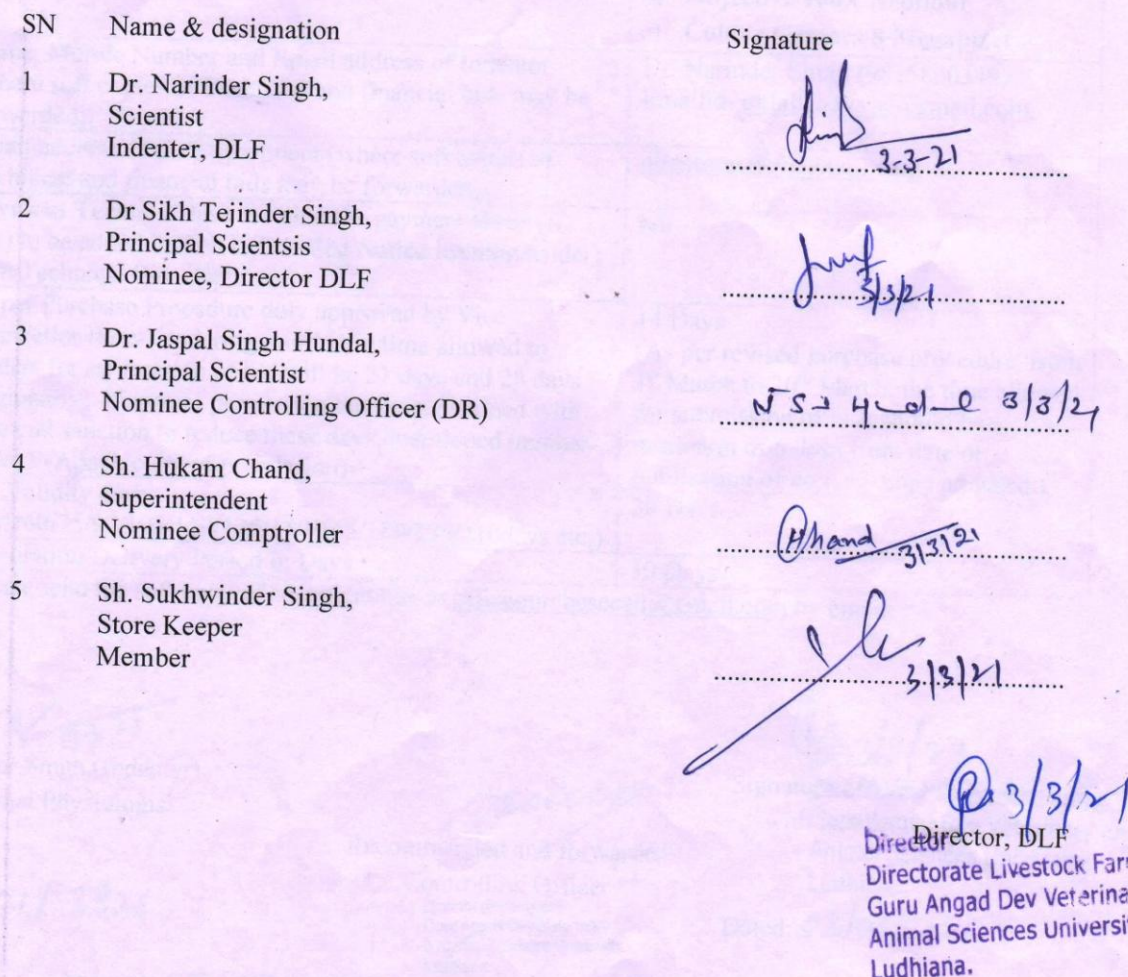 SN Name & designation Signature
Dr. Narinder Singh,
Scientist
Indenter, DLF
3-3-21
2 Dr Sikh Tejinder Singh,
Principal Scientsis
Nominee, Director DLF
3/3/21
3 Dr. Jaspal Singh Hundal,
Principal Scientist
Nominee Controlling Officer (DR)
3/3/21
4 Sh. Hukam Chand,
Superintendent
Nominee Comptroller
3/3/21
5 Sh. Sukhwinder Singh,
Store Keeper
Member
3/3/21
3/3/21
Director, DLF
Director
Directorate Livestock Far
Guru Angad Dev Veterina
Animal Sciences Universi
Ludhiana.